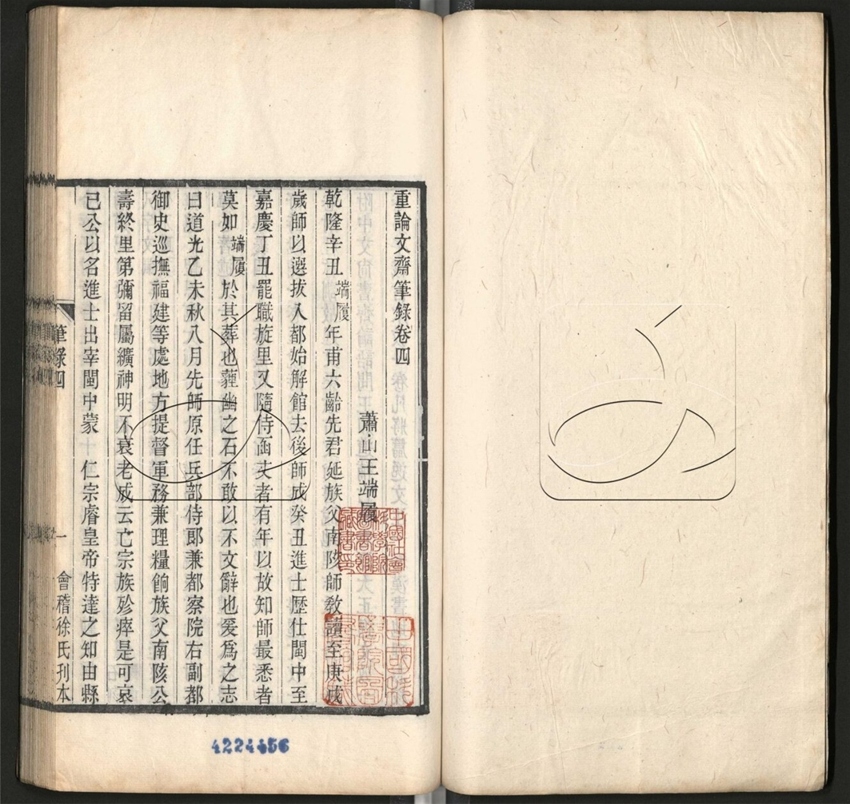 重論文齋筆錄卷四
蕭山王端履
乾隆辛丑端履年甫六齡先君延族父南陔師敎讀至庚戌
歲師以選拔入都始解館去後師成癸丑進士歷仕閩中至
嘉慶丁丑罷職旋里又隨侍函丈者有年以故知師最悉者
莫如端履於其葬也薶幽之石不敢以不文辭也爰爲之志
曰道光乙未秋八月先師原任兵部侍郎兼都察院右副都
御史巡撫福建等處地方提督軍務兼理糧餉族父南陔公
壽終里第彌留屬纊神明不衰老成云亡宗族殄瘁是可哀
已公以名進士出宰閩中蒙仁宗睿皇帝特達之知由縣
筆錄四
一
會稽徐氏刋本
4224456